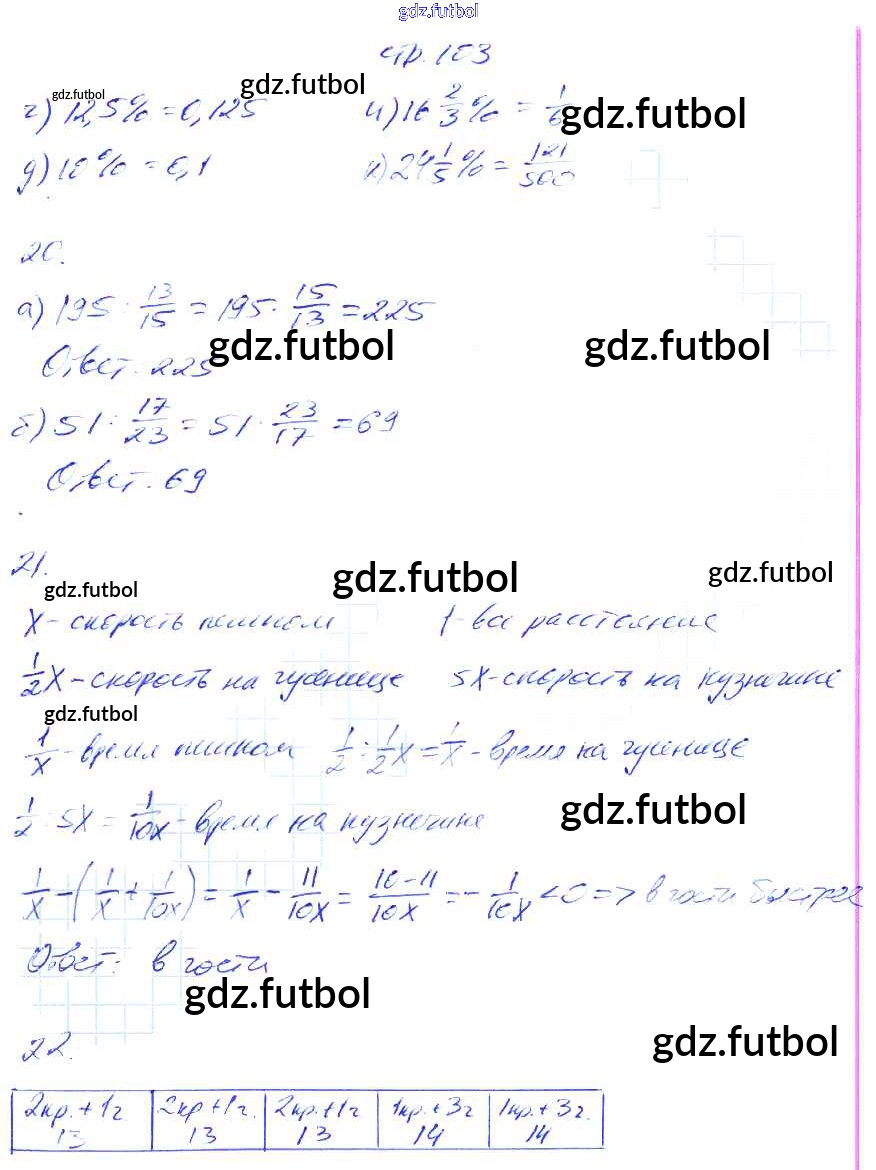 gdz.futbol
стр. 103
gdz.futbol gdz.futbol
г) 12,5% = 0,125 и) 16 2/3 % = 1/6 gdz.futbol
д) 10% = 0,1 к) 24 1/5 % = 121/500
20.
а) 195 : 13/15 = 195 · 15/13 = 225
Ответ: 225 gdz.futbol gdz.futbol
б) 51 : 17/23 = 51 · 23/17 = 69
Ответ: 69
21.
gdz.futbol gdz.futbol gdz.futbol
x - скорость пешком 1 - все расстояние
1/2 x - скорость на гусенице 5x - скорость на кузнечике
gdz.futbol
1/x - время пешком 1/2 : 1/2 x = 1/x - время на гусенице
1/2 : 5x = 1/10x - время на кузнечике gdz.futbol
1/x - (1/x + 1/10x) = 1/x - 11/10x = 10-11/10x = - 1/10x < 0 => в гости быстрее
Ответ: в гости
gdz.futbol
22. gdz.futbol
2кр. + 1г 2кр + 1г. 2кр. + 1г 1кр. + 3г 1кр. + 3г.
13 13 13 14 14